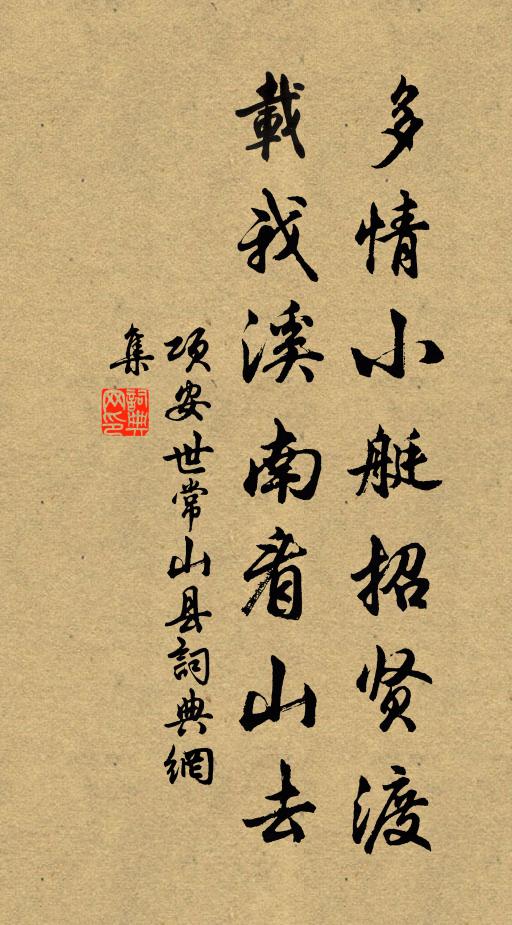 多情小艇招贤渡
載我溪南看山去
项安世常山县詞典網
集
詞典网印